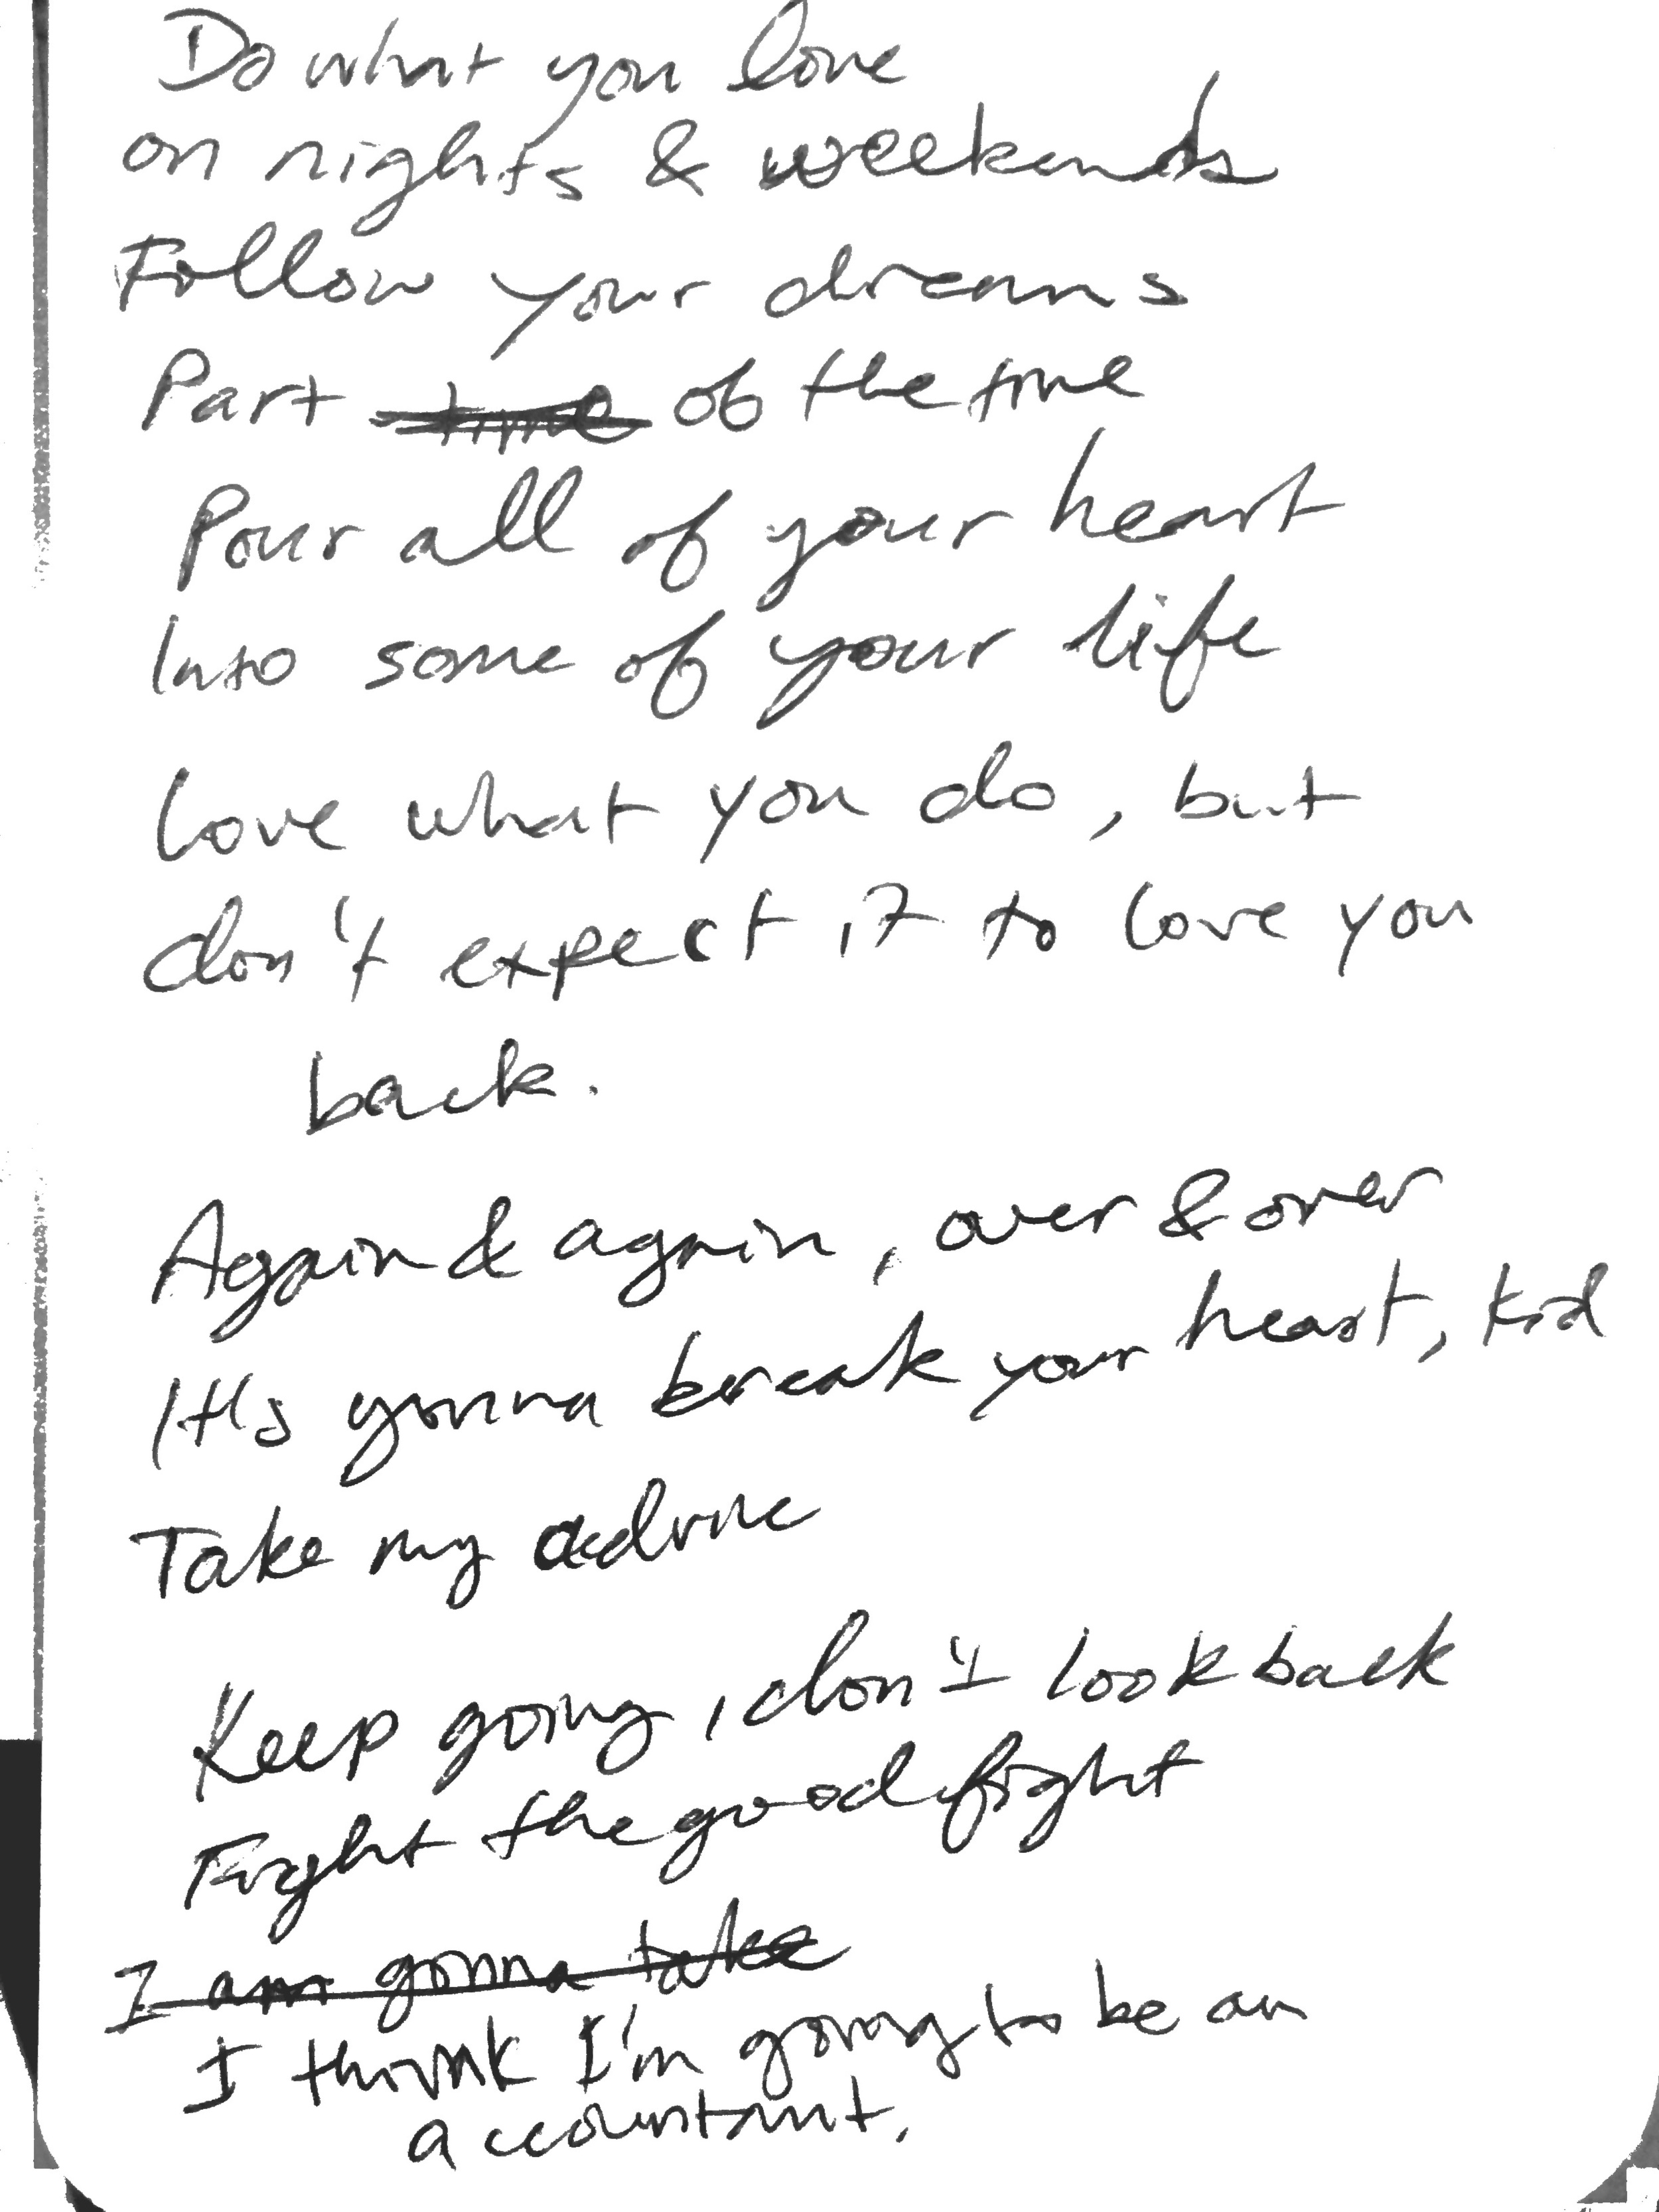 Do what you love
on nights & weekends
Follow your dreams
Part time of the time
Pour all of your heart
Into some of your life
Love what you do, but
don't expect it to love you
back.
Again & again, over & over
It's gonna break your heart, kid
Take my advice
Keep going, don't look back
Fight the good fight
I am gonna take
I think I'm going to be an
accountant.